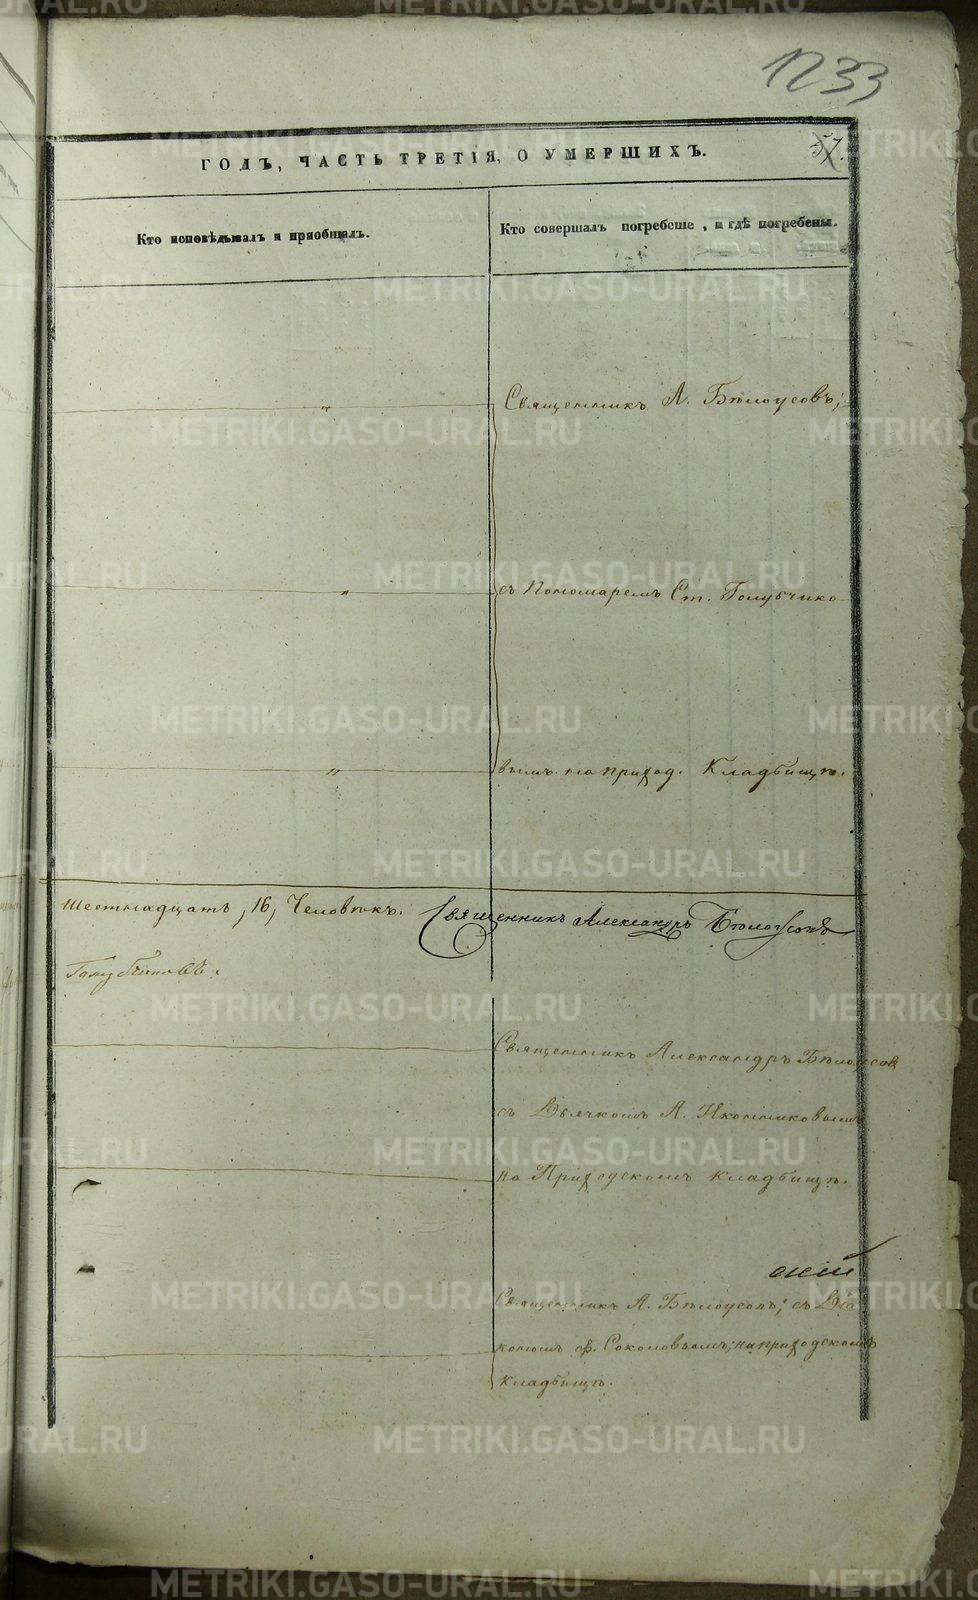 1233
ГОДЪ, ЧАСТЬ ТРЕТІЯ, О УМЕРШИХЪ.
57.
Кто исповѣдывалъ и пріобщалъ.
Кто совершалъ погребеніе, и гдѣ погребены.
" Священникъ А. Бѣлоусовъ;
" съ Пономаремъ Ст. Голубчико
" вымъ на приход. Кладбищѣ.
Шестнадцать, 16, Человѣкъ. Священникъ Александръ Бѣлоусовъ
Голубчиковъ.
Священникъ Александръ Бѣлоусов
съ Дьячкомъ А. Иконниковымъ
на Приходскомъ кладбищѣ.
Священникъ А. Бѣлоусовъ; съ Діа
кономъ Ф. Соколовымъ; на приходскомъ
кладбищѣ.
METRIKI.GASO-URAL.RU